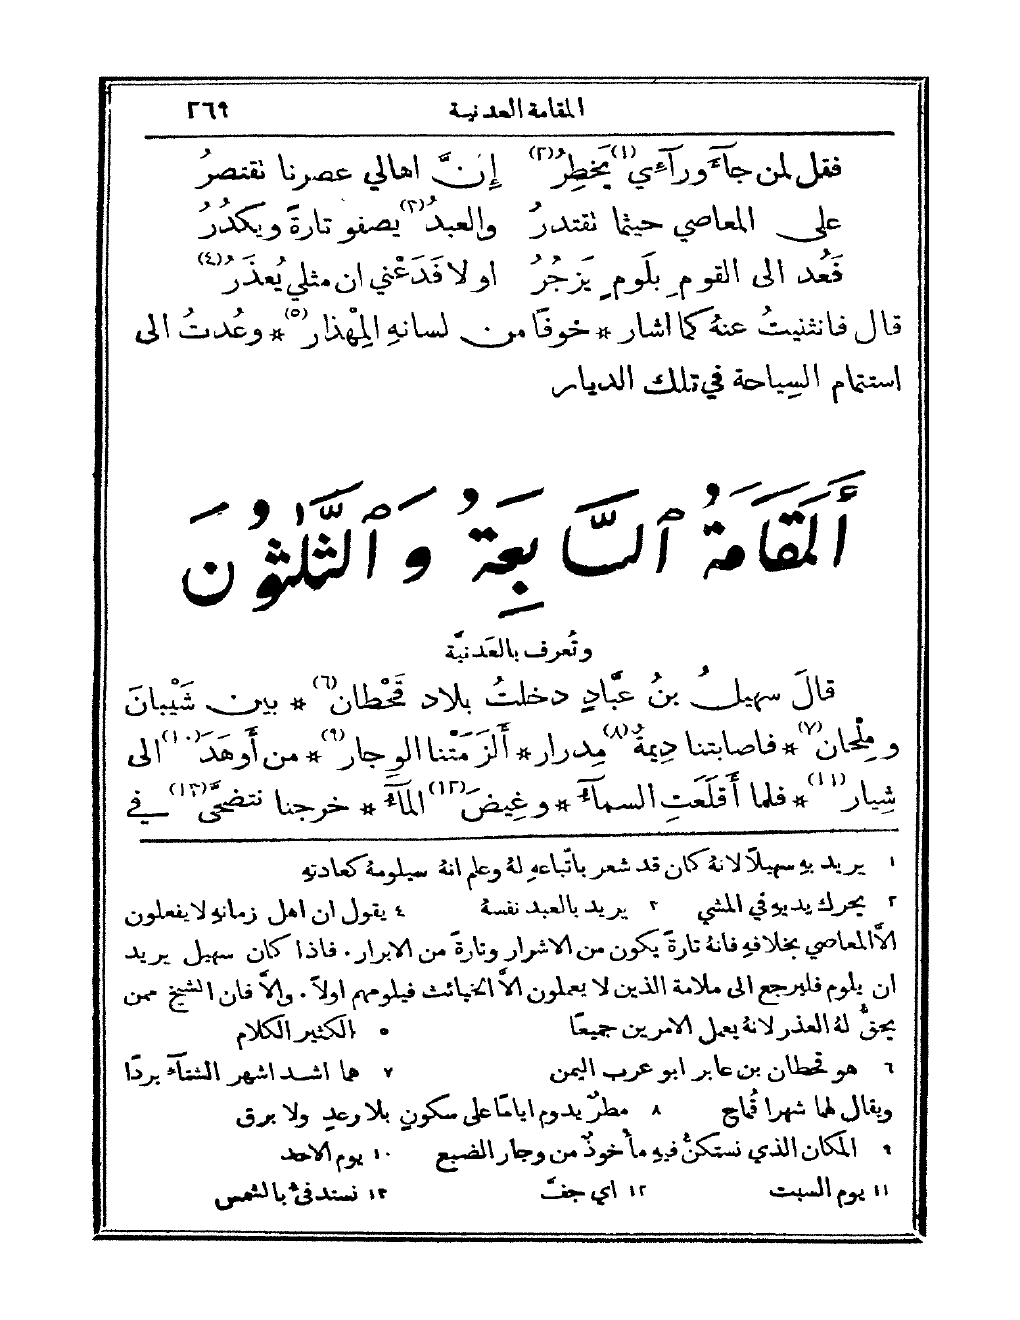 المقامة العدنية ٢٦٩
فقل لمن جآءَ ورآءِي(١) يَخطِرُ(٢) إِنَّ اهالي عصرنا تقتصرُ
على المعاصي حيثما تقتدرُ والعبدُ(٣) يصفو تارةً ويكدُرُ
فَعُد الى القومِ بلَومٍ يَزجُرُ او لا فَدَعْني ان مثلي يُعذَرُ(٤)
قال فانثنيتُ عنهُ كما اشار * خوفًا من لسانهِ المِهْذار(٥) * وعُدتُ الى
استتمام السِياحة في تلك الديار
أَلمَقَامَةُ ٱلسَّابِعَةُ وَٱلثَّلٰثُونَ
وتُعرف بالعَدنيَّة
قالَ سهيلُ بنُ عبَّادٍ دخلتُ بلاد قَحْطان(٦) * بين شَيْبانَ
ومِلْحان(٧) * فاصابتنا دِيمةُ(٨) مِدرار * أَلزَمَتْنا الوِجار(٩) * من أَوهَدَ(١٠) الى
شِيار(١١) * فلما أَقلَعَتِ السمآءُ * وغِيضَ(١٢) المآءُ * خرجنا نتضحَّى(١٣) في
١ يريد بهِ سهيلًا لانهُ كان قد شعر باتّباعهِ لهُ وعلم انهُ سيلومهُ كعادتهِ
٢ يحرك يديهِ في المشي ٣ يريد بالعبد نفسهُ ٤ يقول ان اهل زمانهِ لا يفعلون
الَّا المعاصي بخلافهِ فانهُ تارةً يكون من الاشرار وتارةً من الابرار. فاذا كان سهيل يريد
ان يلوم فليرجع الى ملامة الذين لا يعملون الَّا الخبائث فيلومهم اولًا. والَّا فان الشيخ ممن
يحقُّ لهُ العذر لانهُ يعمل الامرين جميعًا ٥ الكثير الكلام
٦ هو قحطان بن عابر ابو عرب اليمن ٧ هما اشد اشهر الشتآء بردًا
ويقال لهما شهرا قُماح ٨ مطرٌ يدوم ايامًا على سكونٍ بلا رعدٍ ولا برق
٩ المكان الذي نستكنُّ فيهِ مأخوذٌ من وجار الضبع ١٠ يوم الاحد
١١ يوم السبت ١٢ اي جفَّ ١٣ نستدفئُ بالشمس